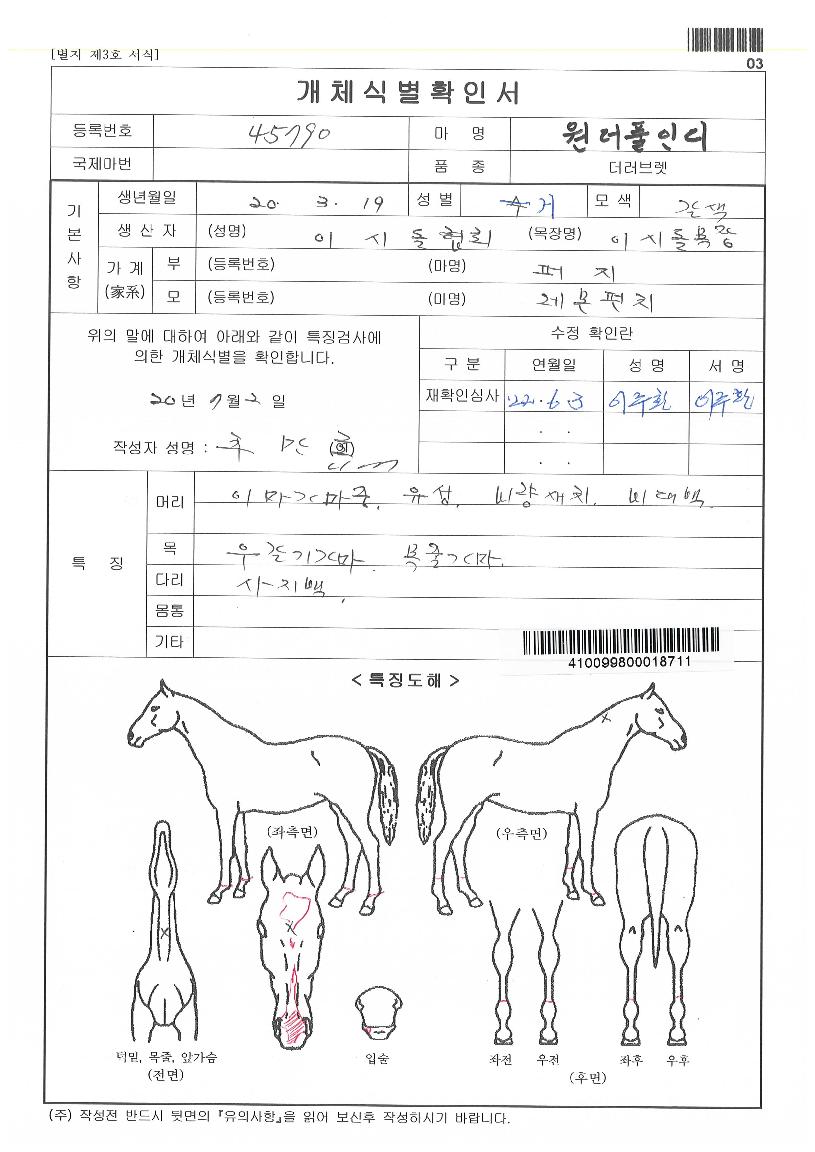 [별지 제3호 서식]
03
개체식별확인서
등록번호 45790 마 명 원더풀인디
국제마번 품 종 더러브렛
기본사항
생년월일 20. 3. 19 성별 수거 모색 갈색
생산자 (성명) 이시돌협회 (목장명) 이시돌목장
가계 (家系)
부 (등록번호) (마명) 퍼지
모 (등록번호) (미명) 레몬펀치
위의 말에 대하여 아래와 같이 특징검사에
의한 개체식별을 확인합니다.
20년 7월 2일
작성자 성명 : 추 만 (인)
수정 확인란
구분 연월일 성명 서명
재확인심사 '22. 6. 3 이주환 이주환
. .
. .
특 징
머리 이마가마중, 유성, 비량재치, 비대백.
목 우갈기가마. 목줄가마.
다리 사지백.
몸통
기타
410099800018711
< 특징도해 >
(좌측면) (우측면)
턱밑, 목줄, 앞가슴
(전면)
입술
좌전 우전 좌후 우후
(후면)
(주) 작성전 반드시 뒷면의 『유의사항』을 읽어 보신후 작성하시기 바랍니다.